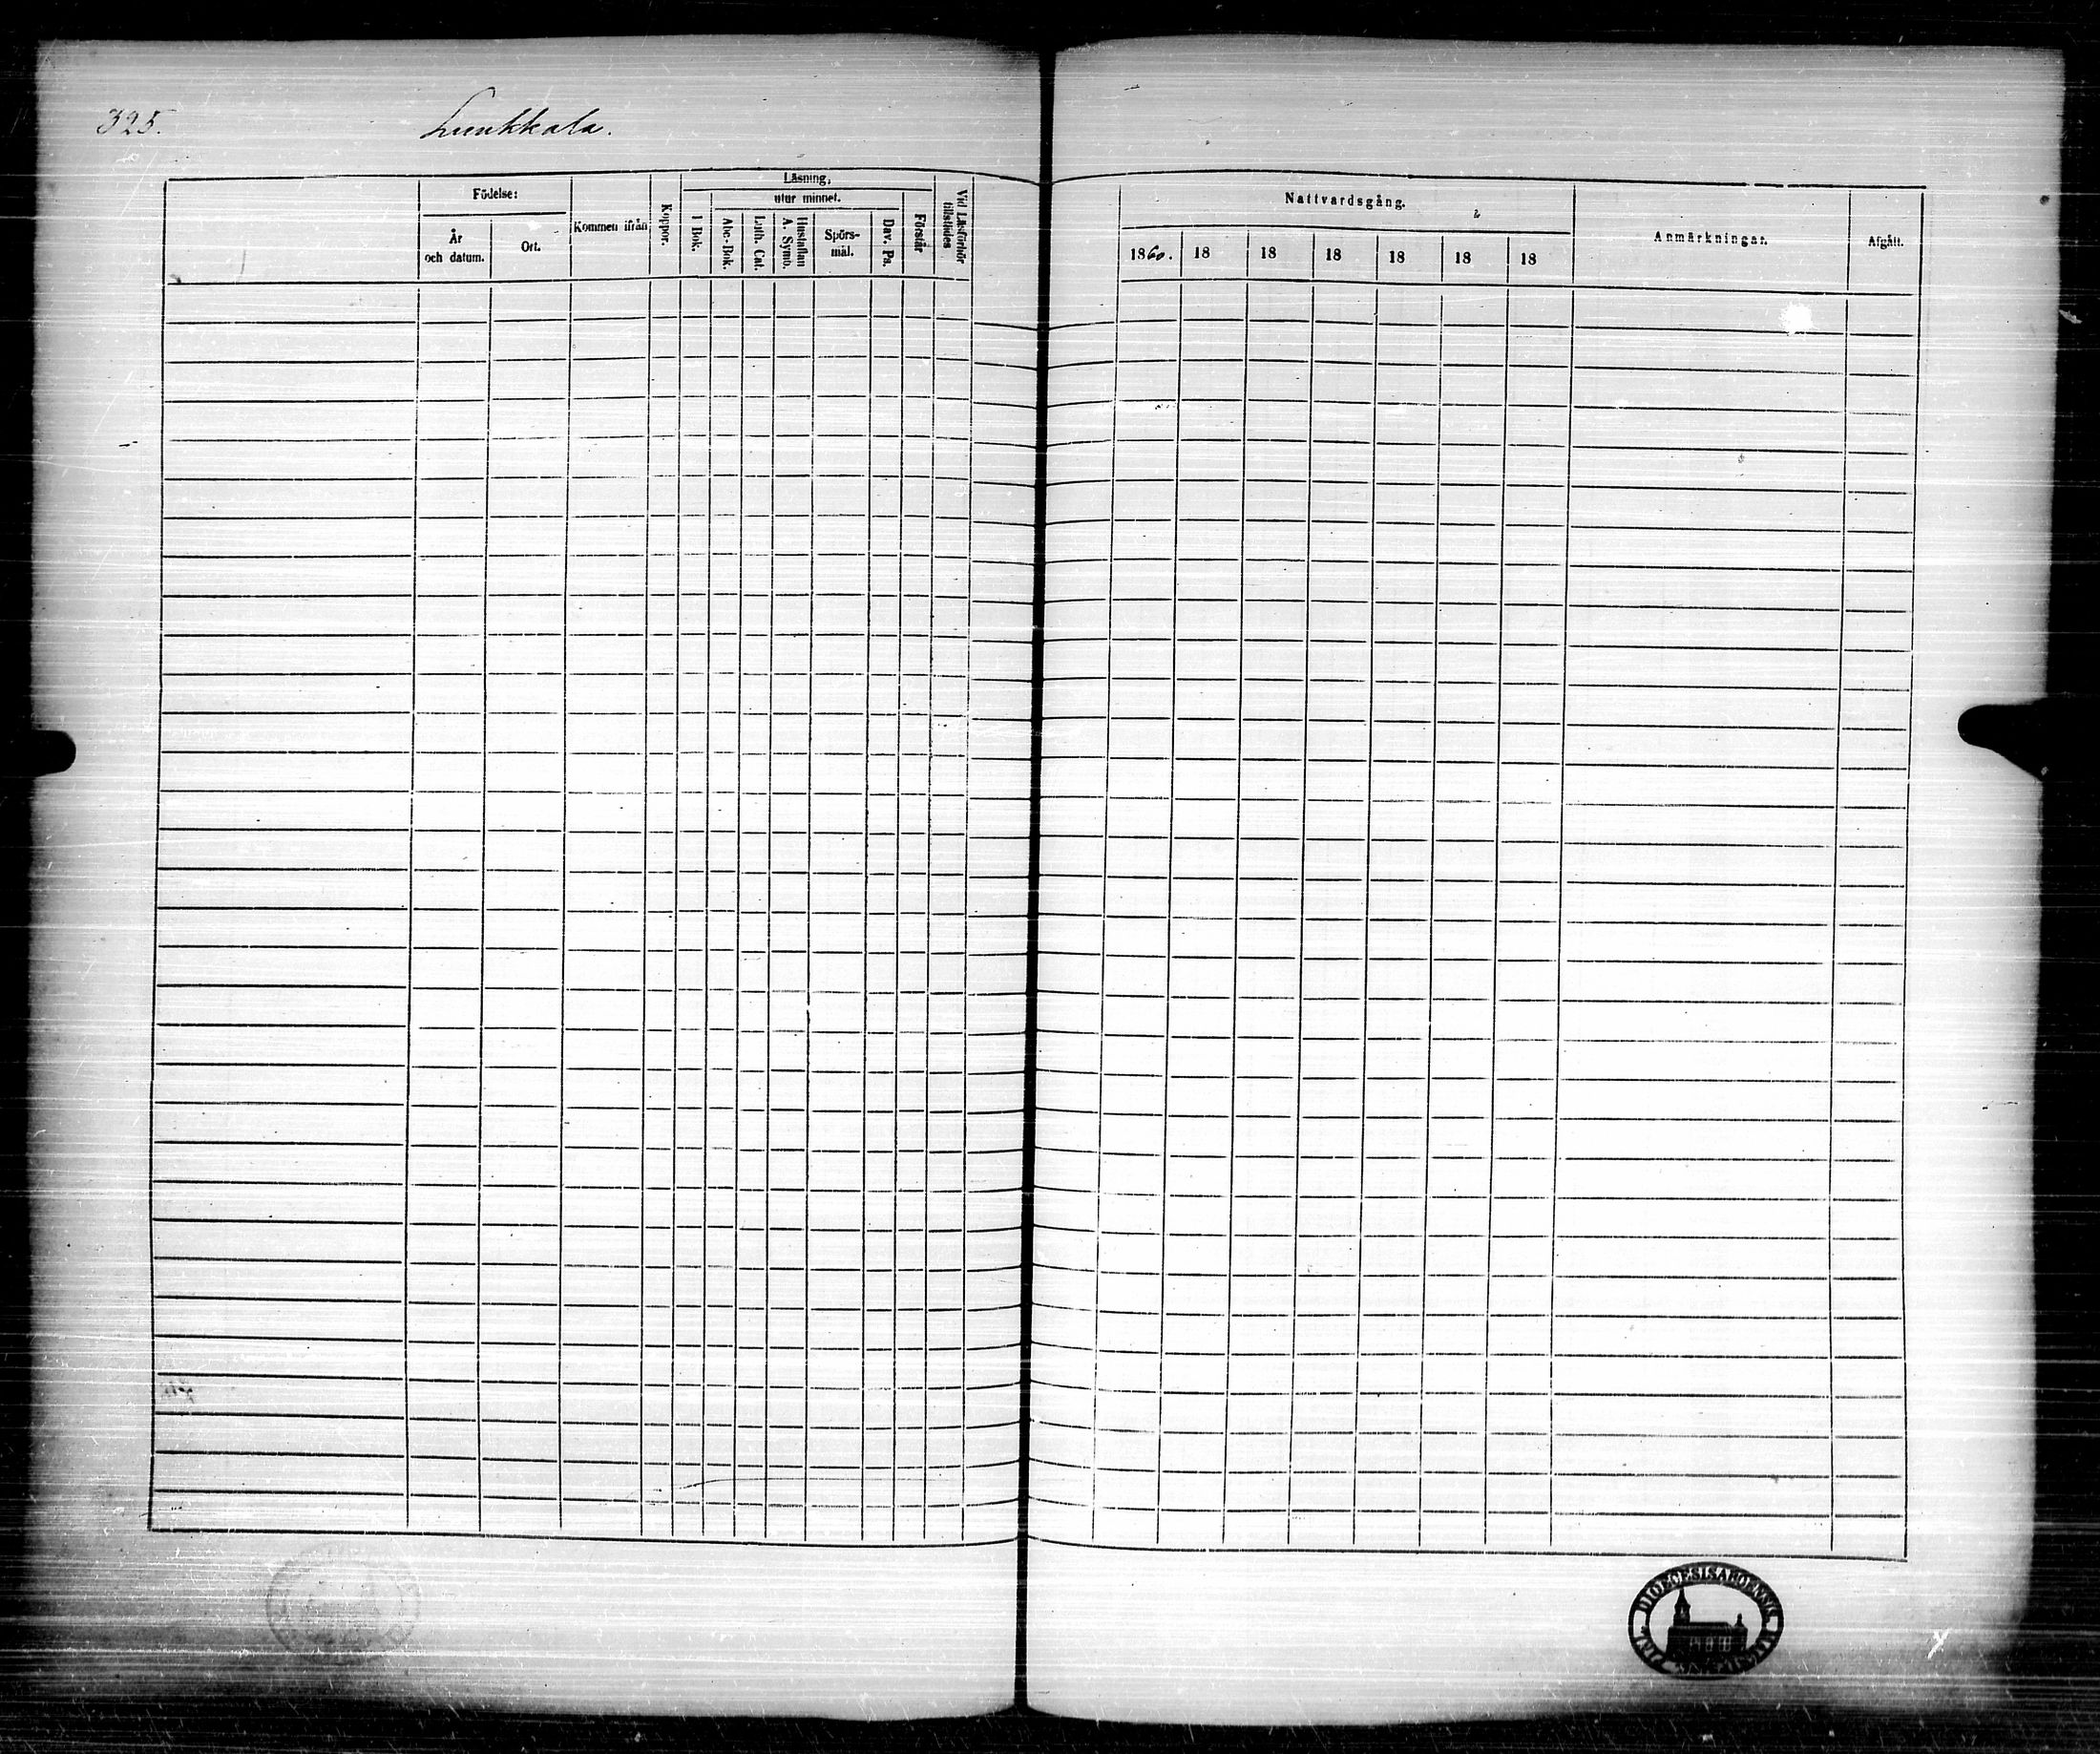 325.
Lunkkala.
Födelse:
År och datum.
Ort.
Kommen ifrån
Koppor.
Läsning,
utur minnet.
I Bok.
Abc-Bok.
Luth. Cat.
Hustaflan A. Symb.
Spörs-
mål.
Dav. Ps.
Förstår
Vid Läsförhör tillstädes
Nattvardsgång.
1860. 18 18 18 18 18 18
Anmärkningar.
Afgått.